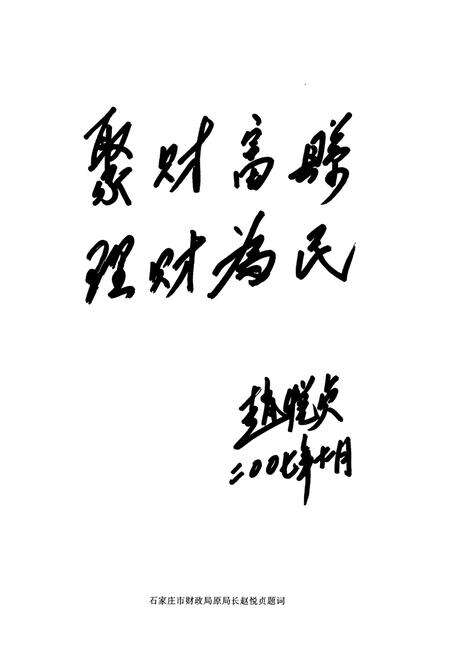 聚财富縣
理财为民
趙悦贞
二〇〇七年十月
石家庄市财政局原局长赵悦贞题词